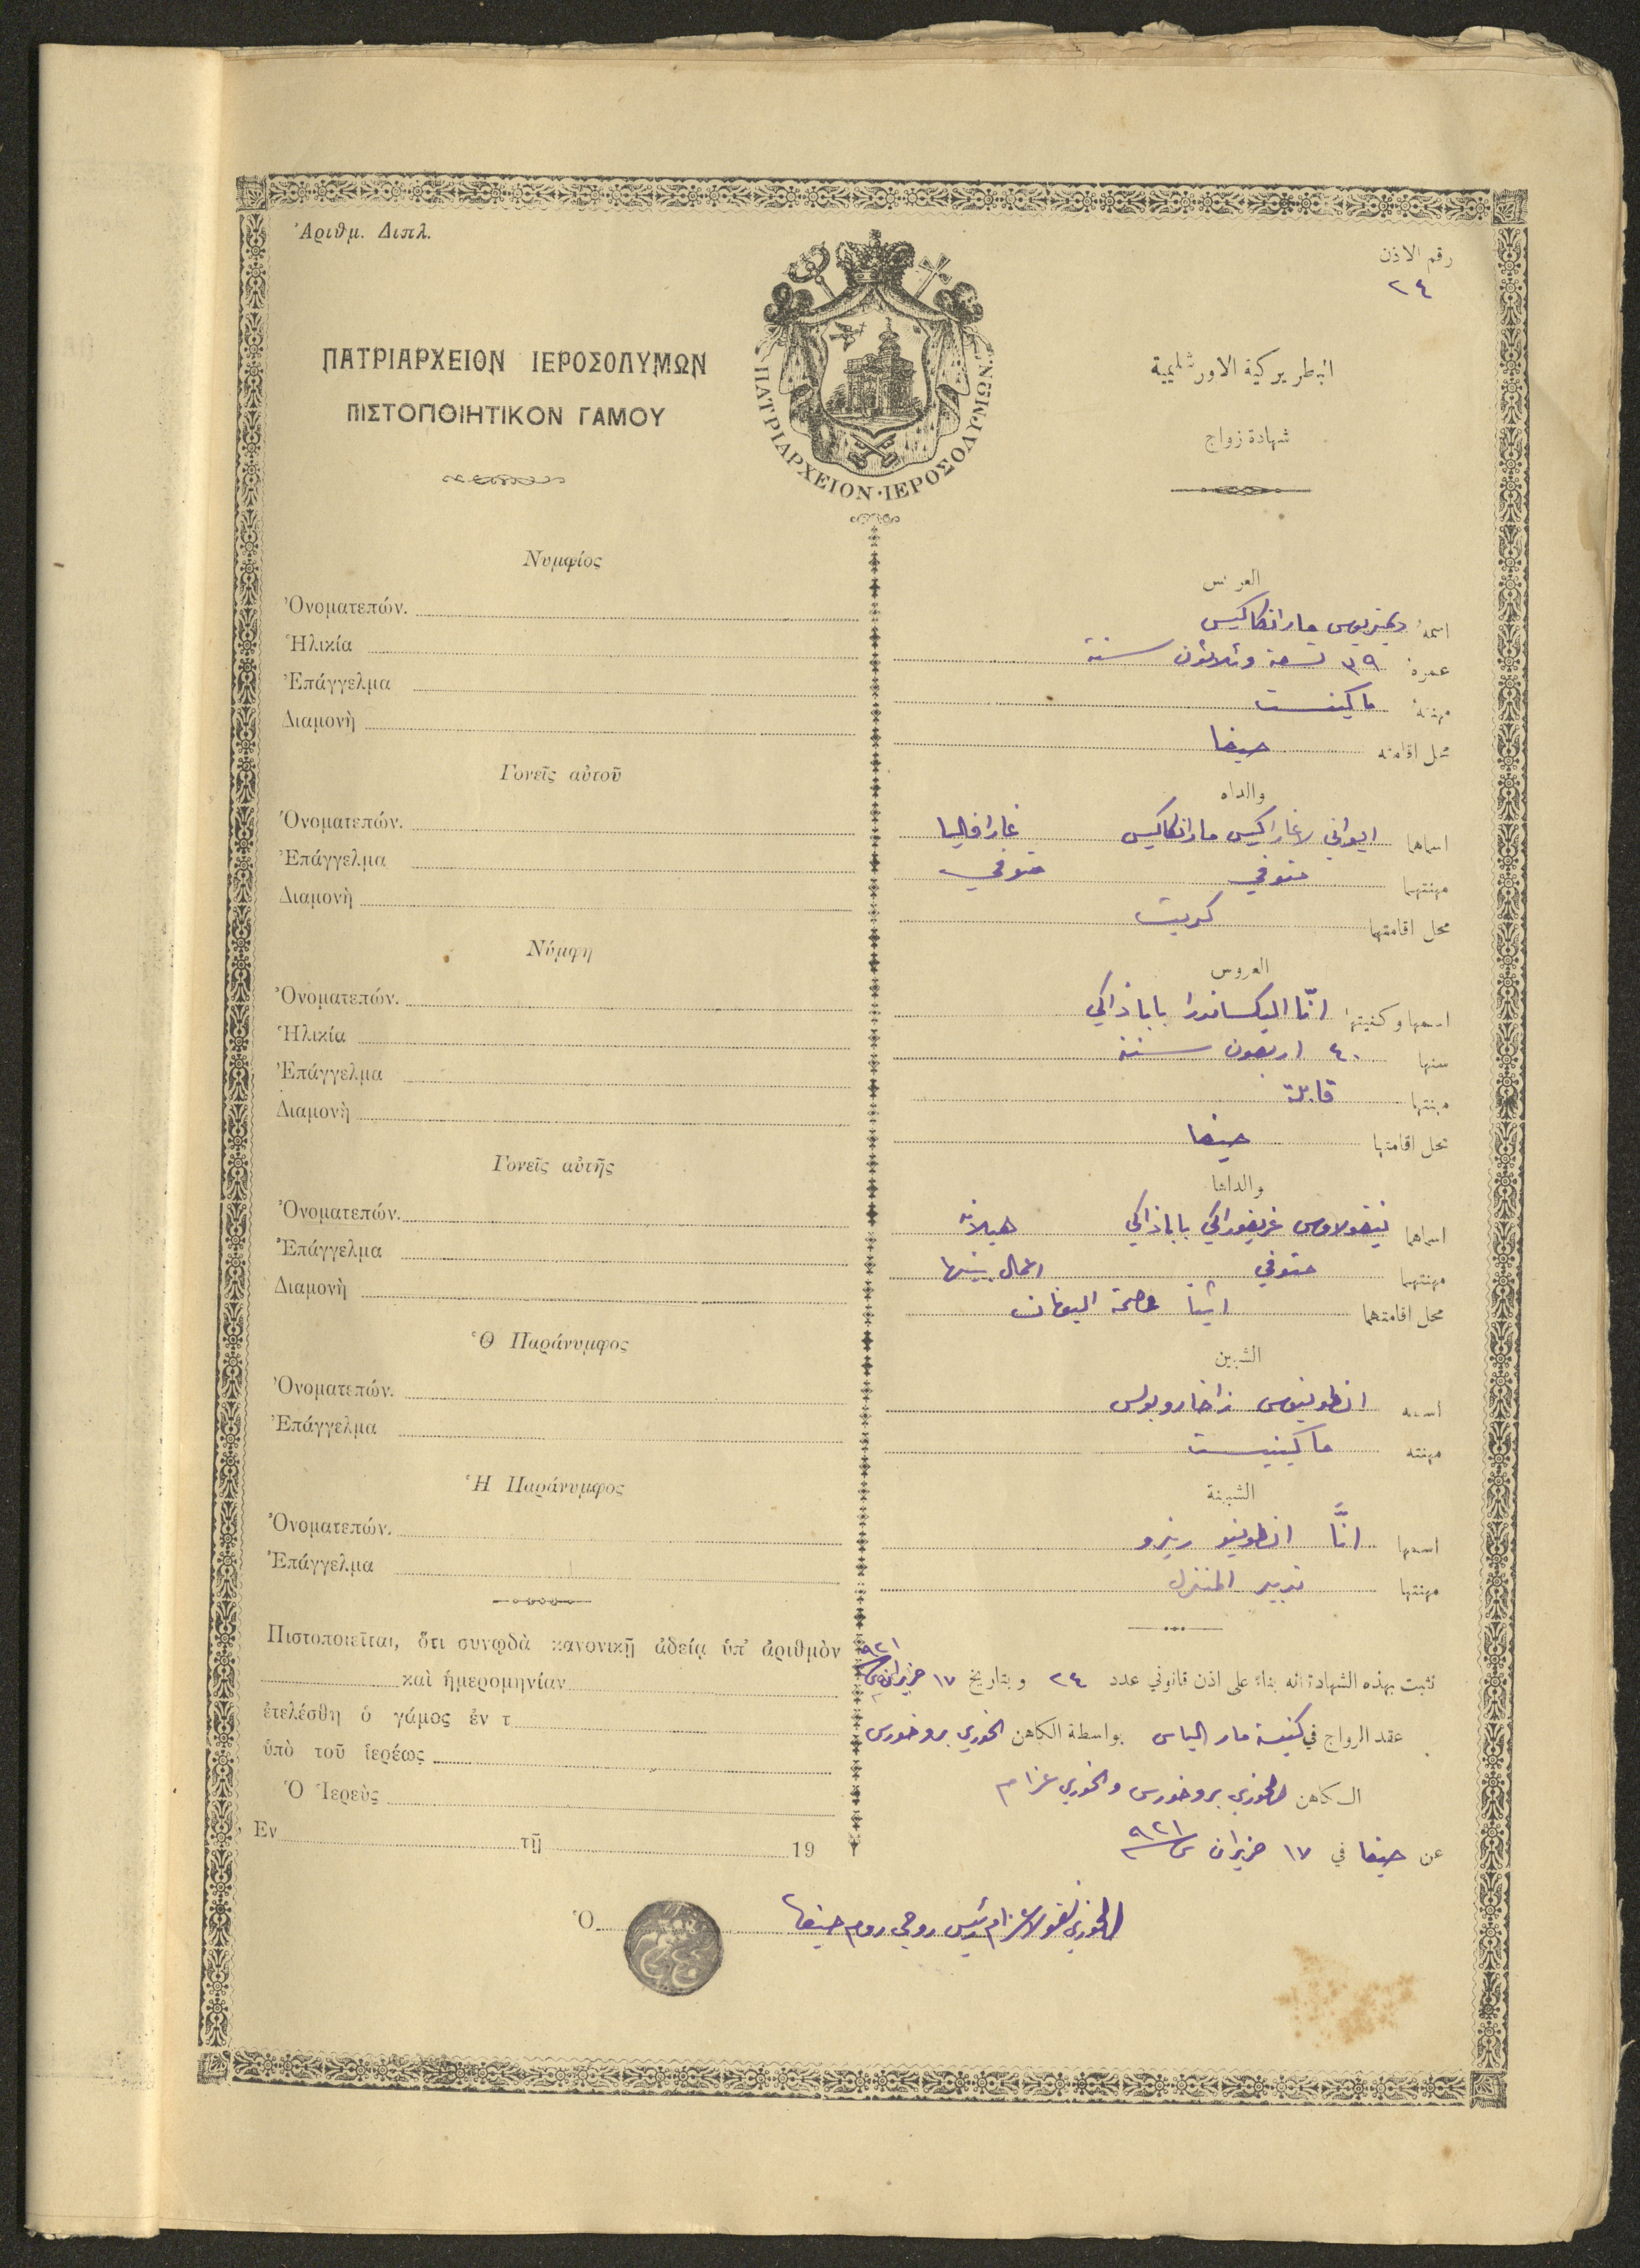 Ἀριθμ. Διπλ.
رقم الاذن
٢٤
ΠΑΤΡΙΑΡΧΕΙΟΝ ΙΕΡΟΣΟΛΥΜΩΝ
ΠΙΣΤΟΠΟΙΗΤΙΚΟΝ ΓΑΜΟΥ
ΠΑΤΡΙΑΡΧΕΙΟΝ·ΙΕΡΟΣΟΛΥΜΩΝ.
البطريركية الاورشليمية
شهادة زواج
Νυμφίος
Ὀνοματεπών.
Ἡλικία
Ἐπάγγελμα
Διαμονὴ
Γονεῖς αὐτοῦ
Ὀνοματεπών.
Ἐπάγγελμα
Διαμονὴ
Νύμφη
Ὀνοματεπών.
Ἡλικία
Ἐπάγγελμα
Διαμονὴ
Γονεῖς αὐτῆς
Ὀνοματεπών.
Ἐπάγγελμα
Διαμονὴ
Ὁ Παράνυμφος
Ὀνοματεπών.
Ἐπάγγελμα
Ἡ Παράνυμφος
Ὀνοματεπών.
Ἐπάγγελμα
Πιστοποιεῖται, ὅτι συνῳδὰ κανονικῇ ἀδείᾳ ὑπ' ἀριθμὸν
καὶ ἡμερομηνίαν
ἐτελέσθη ὁ γάμος ἐν τ
ὑπὸ τοῦ ἱερέως
Ὁ Ἱερεὺς
Ἐν τῇ 19
Ὁ
العريس
اسمهُ ديمتريوس مارانكاكيس
عمرهُ ٣٩ تسعة وثلاثون سنة
مهنتهُ ماكينست
محل اقامته حيفا
والداه
اسماهما ايواني لاغاراكيس مارانكاكيس غارافاليا
مهنتهما متوفي متوفي
محل اقامتهما كريت
العروس
اسمها وكنيتها انّا اليكساندرا باباذاكي
سنها ٤٠ اربعون سنة
مهنتها قابلة
محل اقامتها حيفا
والداها
اسماهما نيقولاوس غريغوراكي باباذاكي هيلانة
مهنتهما متوفي اعمال بيتها
محل اقامتهما اثينا عاصمة اليونان
الشبين
اسمه انطونيوس زاخاروبولس
مهنته ماكينيست
الشبينة
اسمها انَّا انطونيو رينرو
مهنتها تدبير المنزل
تثبت بهذه الشهادة انه بناءً على اذن قانوني عدد ٢٤ وبتاريخ ١٧ حزيران ٩٢١
عقد الزواج في كنيسة مار الياس بواسطة الكاهن الخوري بروخورس
الكاهن الخوري بروخورس والخوري عزام
عن حيفا في ١٧ حزيران ٩٢١
الخوري نقولا عزام رئيس روحي روم حيفا